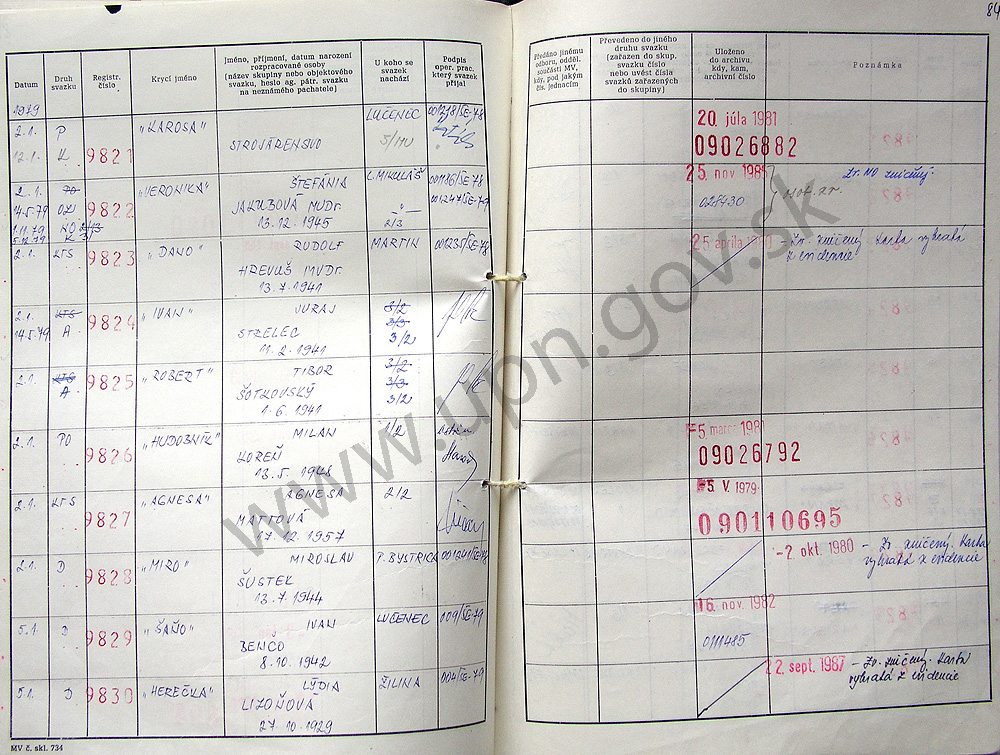 84
Datum
Druh svazku
Registr. číslo
Krycí jméno
Jméno, příjmení, datum narození
rozpracované osoby
(název skupiny nebo objektového
svazku, heslo ag. pátr. svazku
na neznámého pachatele)
U koho se svazek nachází
Podpis oper. prac. který svazek přijal
Předáno jinému
odboru, odděl.
součásti MV,
kdy, pod jakým
čís. jednacím
Převedeno do jiného
druhu svazku
(zařazen do skup.
svazku číslo
nebo uvést čísla
svazků zařazených
do skupiny)
Uloženo
do archivu,
kdy, kam,
archivní číslo
Poznámka
1979
2.1. P 9821 "KAROSA" LUČENEC 20. júla 1981
12.1. K STROJÁRENSVO 09026882
2.1. PO 9822 "VERONIKA" ŠTEFÁNIA L. MIKULÁŠ 25. nov 1985 Zv. NO zničený.
14.5.79 JAKUBOVÁ MUDr. 028430
13.12.1945 2/3
2.1. KTS 9823 "DANO" RUDOLF MARTIN 00123/ŠE-78 25 apríla 1980 - Zv. zničený karta vybratá
HREVUŠ MVDr. z evidencie
13.7.1941
2.1. KTS 9824 "IVAN" JURAJ 3/2
14.5.79 A STRELEC 3/3
11.2.1941 3/2
2.1. KTS 9825 "ROBERT" TIBOR 3/2
A ŠOTKOVSKÝ 3/3
1.6.1941 3/2
2.1. PO 9826 "HUDOBNÍK" MILAN 1/2 5. marca 1981
KOREŇ 09026792
13.5.1948
2.1. KTS 9827 "AGNESA" AGNESA 2/2 5. V. 1979
MATTOVÁ 090110695
17.12.1957
2.1. D 9828 "MIRO" MIROSLAV P. BYSTRICA 001241/ŠE-78 -2 okt. 1980 - Zv. zničený, karta
ŠUSTEK vybratá z evidencie
13.7.1944
5.1. D 9829 "ŠAŇO" IVAN LUČENEC 009/ŠE-79 16. nov. 1982
BENCO 0111485
8.10.1942
5.1. D 9830 "HEREČKA" LÝDIA ŽILINA 004/ŠE-79 22 sept. 1987 - Zv. zničený. Karta
LIZOŇOVÁ vybratá z evidencie
27.10.1929
MV č. skl. 734
www.upn.gov.sk